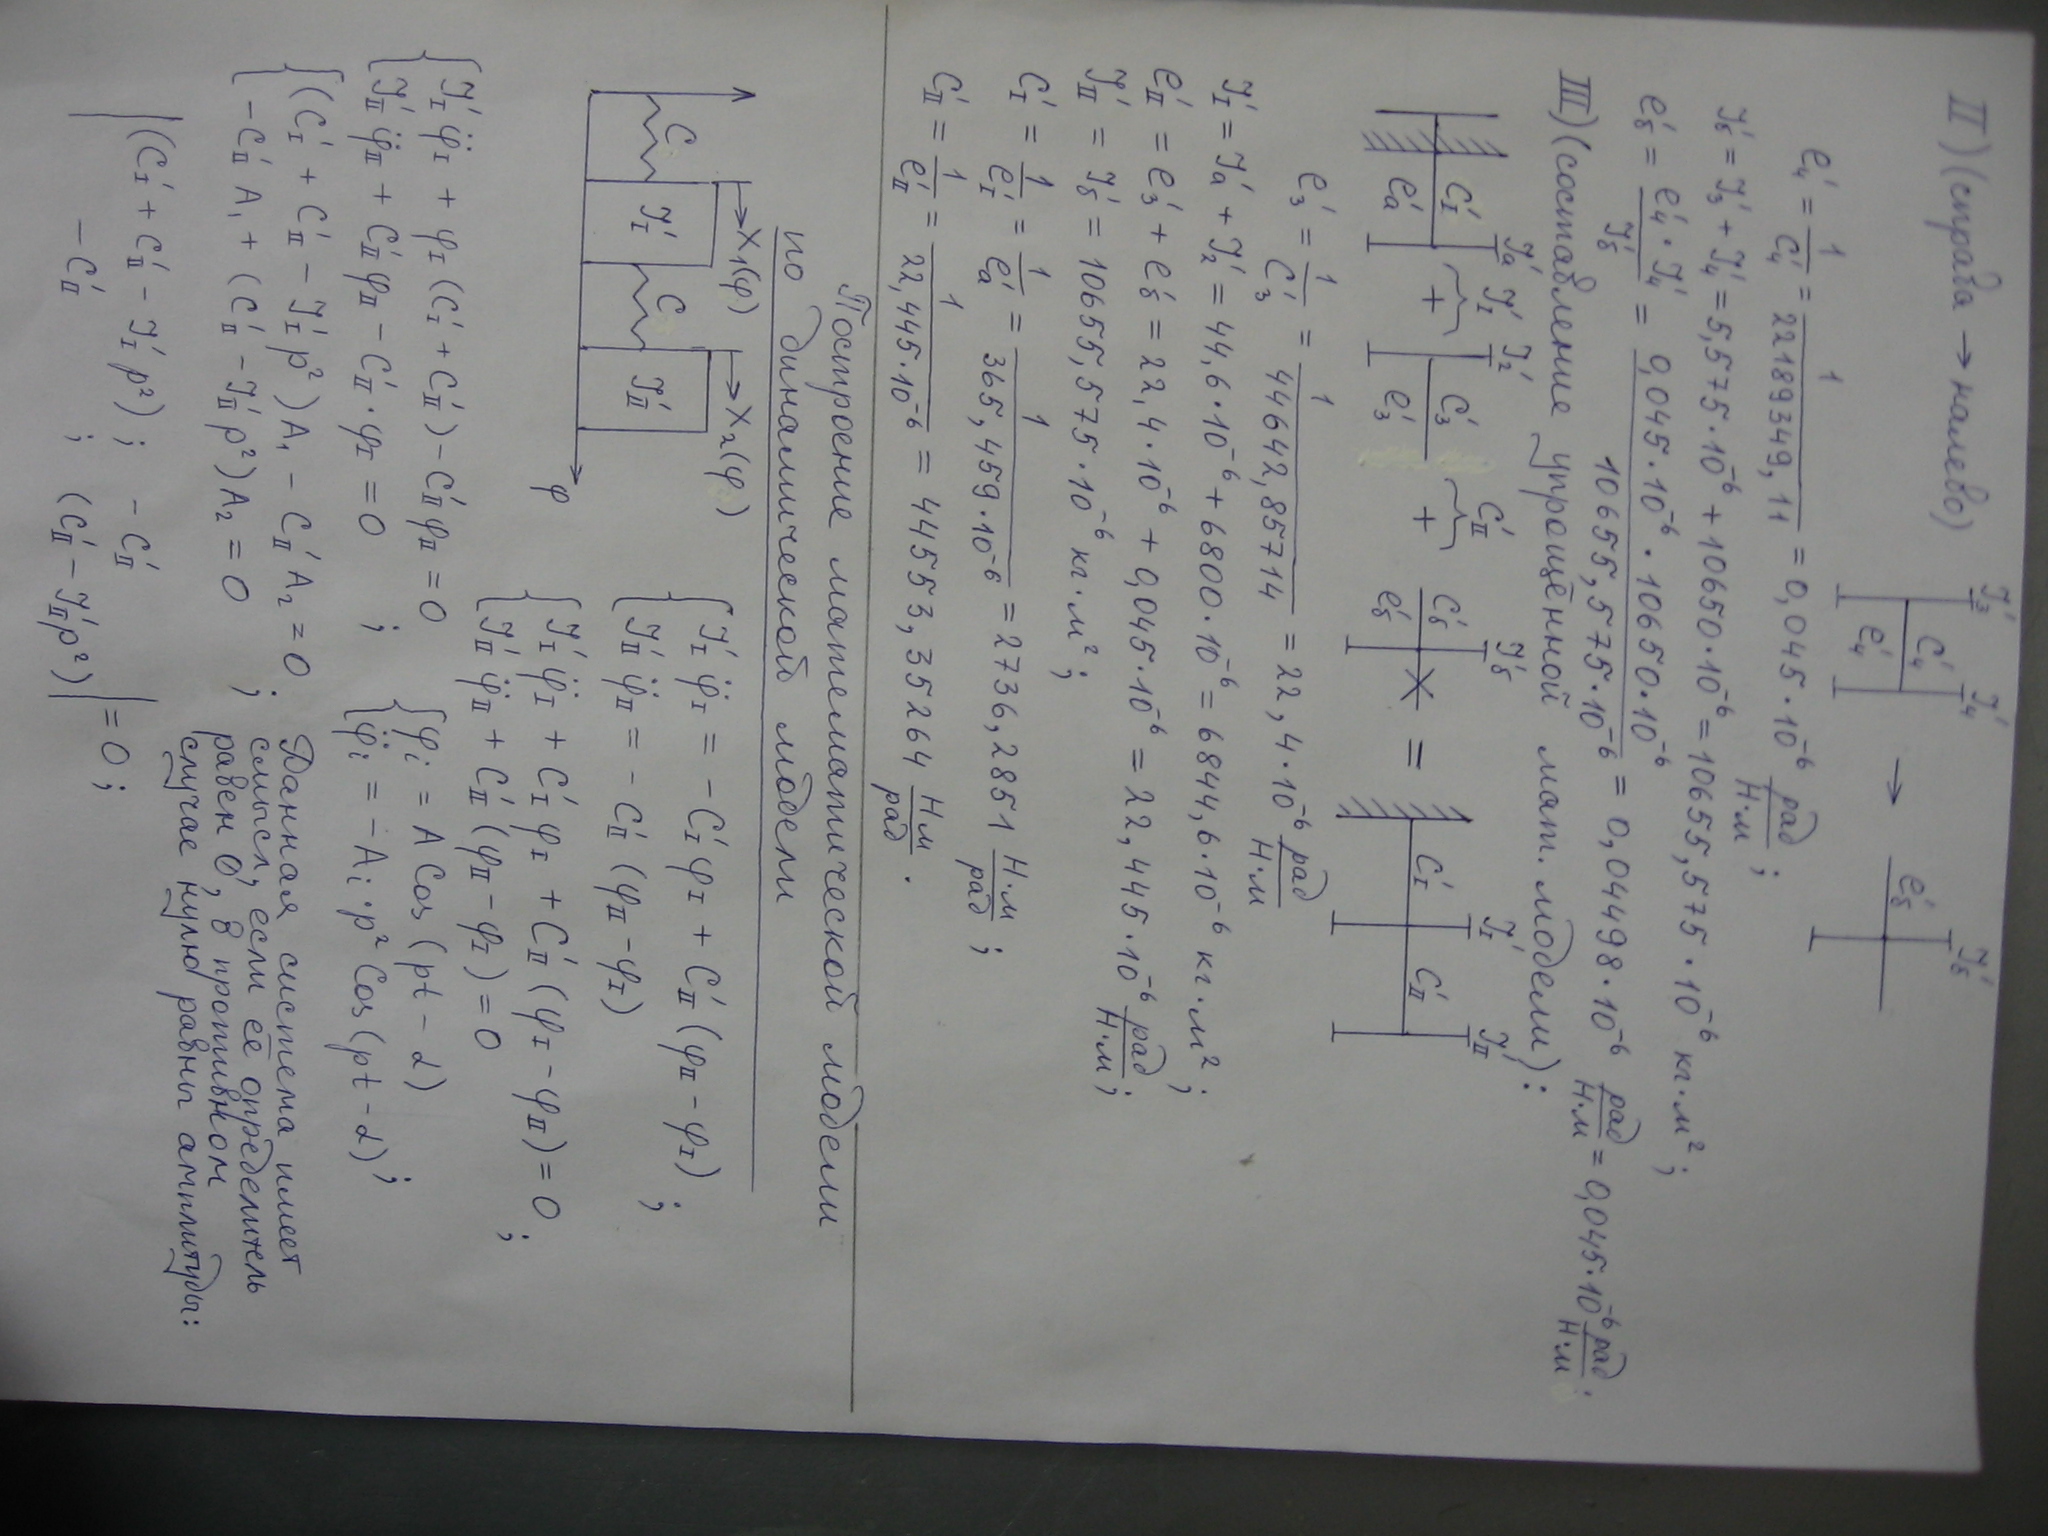 II) (справа → налево)
J₃' J₄' → J₅'
C₄'
e₄' e₅'
e₄' = 1/C₄' = 1/22189349,11 = 0,045·10⁻⁶ рад/Н·м ;
J₅' = J₃' + J₄' = 5,575·10⁻⁶ + 10650·10⁻⁶ = 10655,575·10⁻⁶ кг·м² ;
e₅' = e₄'·J₄'/J₅' = 0,045·10⁻⁶·10650·10⁻⁶/10655,575·10⁻⁶ = 0,04498·10⁻⁶ рад/Н·м = 0,045·10⁻⁶ рад/Н·м ;
III) (составление упрощённой мат. модели):
Jа' J_I' J₂' C_II' J₅' J_I' J_II'
C_I' + C₃' + C₅' X = C_I' C_II'
eа' e₃' e₅'
e₃' = 1/C₃' = 1/44642,85714 = 22,4·10⁻⁶ рад/Н·м
J_I' = Jа' + J₂' = 44,6·10⁻⁶ + 6800·10⁻⁶ = 6844,6·10⁻⁶ кг·м² ;
e_II' = e₃' + e₅' = 22,4·10⁻⁶ + 0,045·10⁻⁶ = 22,445·10⁻⁶ рад/Н·м ;
J_II' = J₅' = 10655,575·10⁻⁶ кг·м² ;
C_I' = 1/e_I' = 1/eа' = 1/365,459·10⁻⁶ = 2736,2851 Н·м/рад ;
C_II' = 1/e_II' = 1/22,445·10⁻⁶ = 44553,35264 Н·м/рад .
Построение математической модели
по динамической модели
X₁(φ) X₂(φ)
C J_I' C J_II'
φ
{ J_I' φ̈_I = − C_I' φ_I + C_II' (φ_II − φ_I)
{ J_II' φ̈_II = − C_II' (φ_II − φ_I) ;
{ J_I' φ̈_I + C_I' φ_I + C_II' (φ_I − φ_II) = 0
{ J_II' φ̈_II + C_II' (φ_II − φ_I) = 0 ;
{ J_I' φ̈_I + φ_I (C_I' + C_II') − C_II' φ_II = 0
{ J_II' φ̈_II + C_II' φ_II − C_II' · φ_I = 0 ;
{ φᵢ = A Cos (pt − α)
{ φ̈ᵢ = − Aᵢ · p² Cos (pt − α) ;
{ (C_I' + C_II' − J_I' p²) A₁ − C_II' A₂ = 0
{ − C_II' A₁ + (C_II' − J_II' p²) A₂ = 0 ;
Данная система имеет
смысл, если её определитель
равен 0, в противном
случае нулю равны амплитуды:
| (C_I' + C_II' − J_I' p²) ; − C_II' |
| − C_II' ; (C_II' − J_II' p²) | = 0 ;